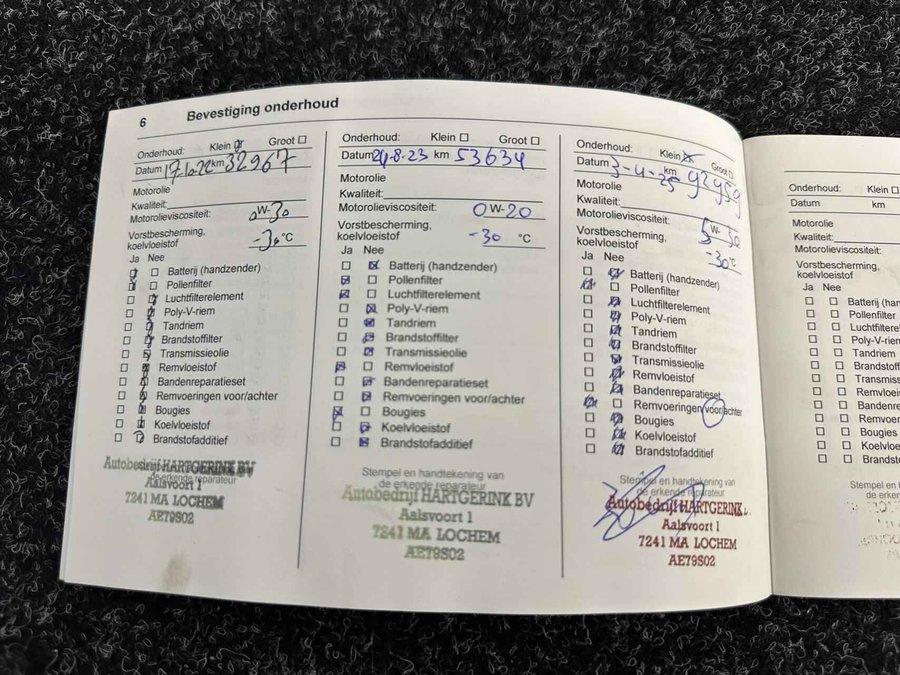 6 Bevestiging onderhoud
Onderhoud: Klein Groot
Datum km 32967
Motorolie
Kwaliteit:
Motorolieviscositeit: 0W-30
Vorstbescherming,
koelvloeistof -30 °C
Ja Nee
Batterij (handzender)
Pollenfilter
Luchtfilterelement
Poly-V-riem
Tandriem
Brandstoffilter
Transmissieolie
Remvloeistof
Bandenreparatieset
Remvoeringen voor/achter
Bougies
Koelvloeistof
Brandstofadditief
Autobedrijf HARTGERINK BV
de erkende reparateur
Aalsvoort 1
7241 MA LOCHEM
AE79S02
Onderhoud: Klein Groot
Datum 24-8-23 km 53634
Motorolie
Kwaliteit:
Motorolieviscositeit: 0W-20
Vorstbescherming,
koelvloeistof -30 °C
Ja Nee
Batterij (handzender)
Pollenfilter
Luchtfilterelement
Poly-V-riem
Tandriem
Brandstoffilter
Transmissieolie
Remvloeistof
Bandenreparatieset
Remvoeringen voor/achter
Bougies
Koelvloeistof
Brandstofadditief
Stempel en handtekening van
de erkende reparateur
Autobedrijf HARTGERINK BV
Aalsvoort 1
7241 MA LOCHEM
AE79S02
Onderhoud: Klein Groot
Datum 3-4-25 km 92959
Motorolie
Kwaliteit:
Motorolieviscositeit: W-30
Vorstbescherming,
koelvloeistof -30°C
Ja Nee
Batterij (handzender)
Pollenfilter
Luchtfilterelement
Poly-V-riem
Tandriem
Brandstoffilter
Transmissieolie
Remvloeistof
Bandenreparatieset
Remvoeringen voor/achter
Bougies
Koelvloeistof
Brandstofadditief
Stempel en handtekening van
de erkende reparateur
Autobedrijf HARTGERINK
Aalsvoort 1
7241 MA LOCHEM
AE79S02
Onderhoud: Klein
Datum km
Motorolie
Kwaliteit:
Motorolieviscositeit:
Vorstbescherming,
koelvloeistof
Ja Nee
Batterij (han
Pollenfilter
Luchtfilterele
Poly-V-rie
Tandriem
Brandstoff
Transmiss
Remvloeis
Bandenre
Remvoer
Bougies
Koelvloei
Brandsto
Stempel en h
de erken